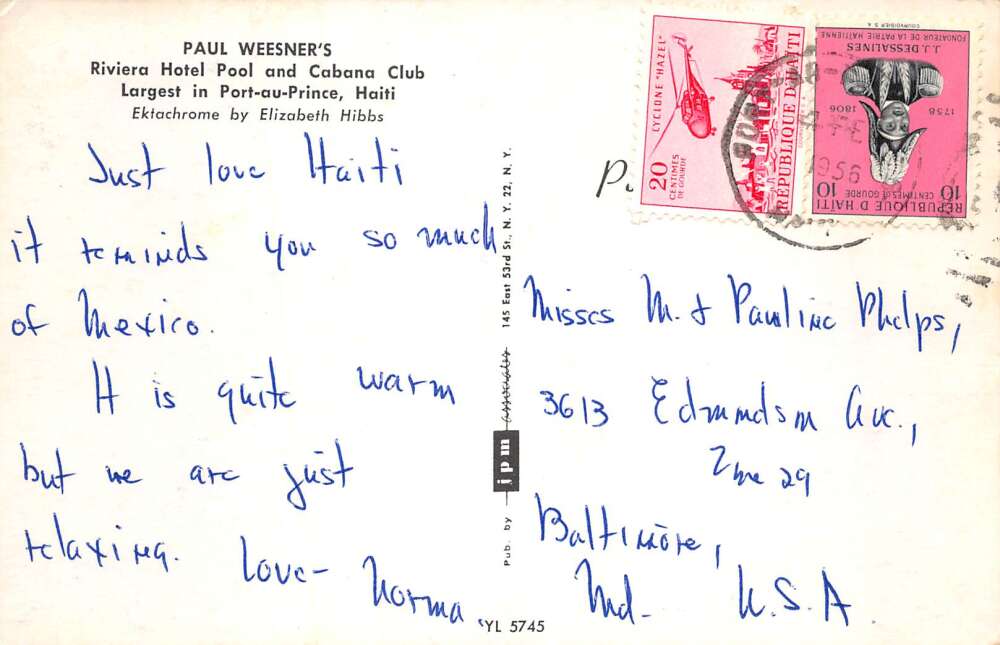 PAUL WEESNER'S
Riviera Hotel Pool and Cabana Club
Largest in Port-au-Prince, Haiti
Ektachrome by Elizabeth Hibbs
Just love Haiti
it reminds you so much
of Mexico.
It is quite warm
but we are just
relaxing.
Love- Norma
YL 5745
Pub. by ipm associates 145 East 53rd St., N. Y. 22, N. Y.
P.
CYCLONE "HAZEL"
20
CENTIMES
DE GOURDE
REPUBLIQUE D'HAITI
COURVOISIER S.A.
FONDATEUR DE LA PATRIE HAITIENNE
J.J. DESSALINES
1758 1806
10 CENTIMES DE GOURDE 10
REPUBLIQUE D HAITI
1956
Misses M. & Pauline Phelps,
3613 Edmondson Ave.,
Zone 29
Baltimore,
Md. U.S.A